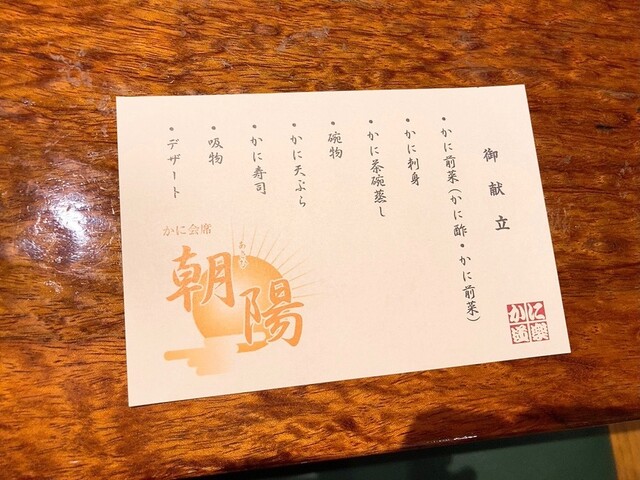 御献立
・かに前菜(かに酢・かに前菜)
・かに刺身
・かに茶碗蒸し
・碗物
・かに天ぷら
・かに寿司
・吸物
・デザート
かに会席
朝陽
あさひ
かに
道楽